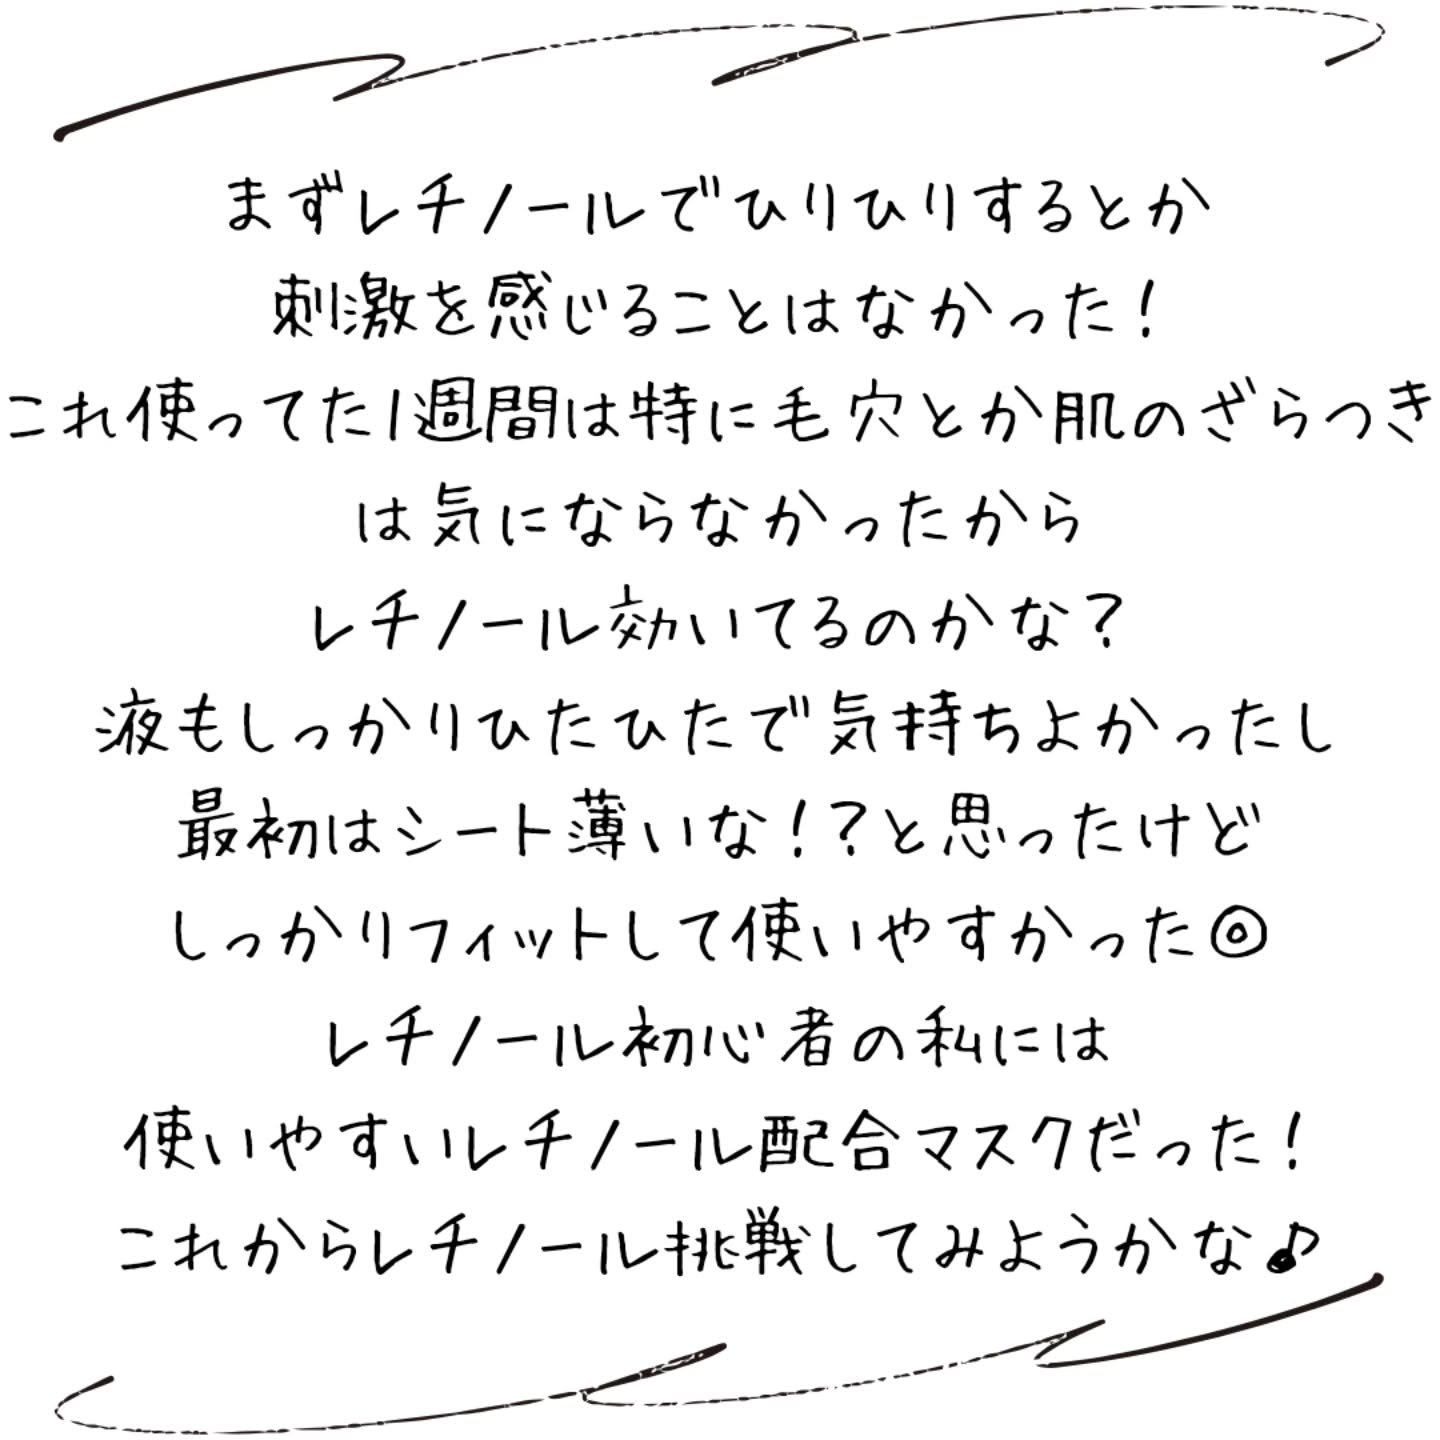 まずレチノールでひりひりするとか
刺激を感じることはなかった！
これ使ってた1週間は特に毛穴とか肌のざらつき
は気にならなかったから
レチノール効いてるのかな？
液もしっかりひたひたで気持ちよかったし
最初はシート薄いな！？と思ったけど
しっかりフィットして使いやすかった◎
レチノール初心者の私には
使いやすいレチノール配合マスクだった！
これからレチノール挑戦してみようかな♪